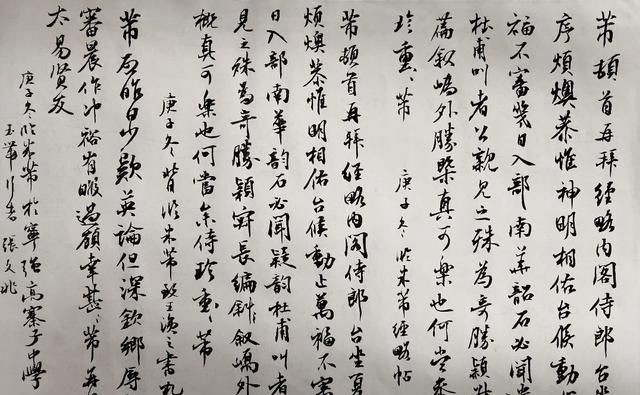 芾頓首再拜經略內閣侍郎台坐
序煩燠恭惟神明相佑台候動
福不審幾日入部南華韶石必聞
杜甫叫者公親見之殊為奇勝穎
篇敘嶠外勝槩真可樂也何當
珍重芾
庚子冬臨米芾經略帖
芾頓首再拜經略內閣侍郎台坐夏
煩燠恭惟明相佑台候動止萬福不審
日入部南華韵石必聞疑韵杜甫叫者
見之殊為奇勝穎 長編 敘嶠外
概真可樂也何當 侍珍重芾
庚子冬 臨米芾致 之書札
芾 昨日少款英論但深欽鄉辱
審晨作沖裕有暇過顧幸甚芾再
太易賢友
庚子冬臨米芾於寧強高寨子中學
玉 張文兆